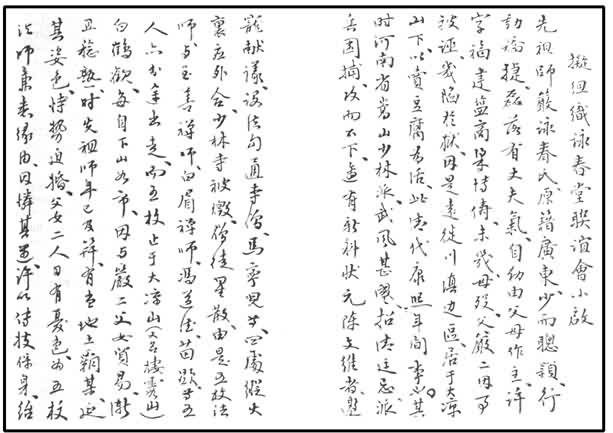 擬組織詠春堂聯誼會小啟
先祖師嚴詠春氏原籍廣東、少而聰穎、行
動矯捷、磊落有丈夫氣、自幼由父母作主、許
字福建鹽商梁博儔、未幾母歿、父嚴二因事
被誣幾陷於獄、因是遠徙川滇邊區、居于大凉
山下、以賣豆腐為活、此清代康熙年間事也。其
時河南省嵩山少林派武風甚熾、招清廷忌、派
兵圍捕攻而不下、適有新科狀元陳文維者、邀
寵獻議、設法勾通寺僧、馬寧兒等、四處縱火
裏應外合少林寺被燬、僧徒星散、由是五枚法
師與至善禪師、白眉禪師、馮道德、苗顯等五
人亦分途出走、而五枚止于大凉山(又名棲霞山)
白鶴觀、每自下山如市、因與嚴二父女貿易、漸
且稔熟、時先祖師年已及笄、有當地土霸某、逞
其姿色、恃勢迫婚、父女二人日有憂色、為五枚
法師查悉緣由、因憐其遇、許以傳技保身、